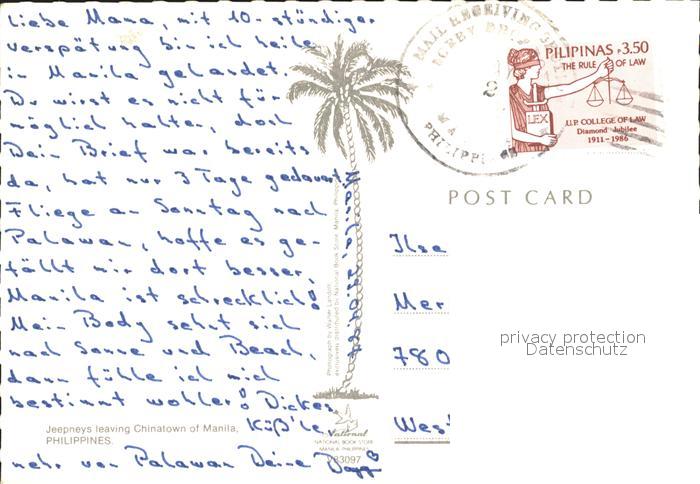 Liebe Mama, mit 10-stündiger
verspätung bin ich heile
in Manila gelandet.
Du wirst es nicht für
möglich halten, doch
Dein Brief war bereits
da, hat nur 3 Tage gedauert.
Fliege am Sonntag nach
Palawan, hoffe es ge-
fällt mir dort besser,
Manila ist schrecklich!
Mein Body sehnt sich
nach Sonne und Beach,
dann fühle ich mich
bestimmt wohler! Dickes
Küß'le,
mehr von Palawan Deine
Jeepneys leaving Chinatown of Manila,
PHILIPPINES.
Photograph by Walter
exclusively distributed by National Book Store, Manila, Philippines
National
NATIONAL BOOK STORE
MANILA PHILIPPINES
MAIL RECEIVING
PHILIPPINES
PILIPINAS ₱3.50
THE RULE OF LAW
LEX
U.P. COLLEGE OF LAW
Diamond Jubilee
1911-1986
POST CARD
Ilse
Mer
780
Wes
privacy protection
Datenschutz